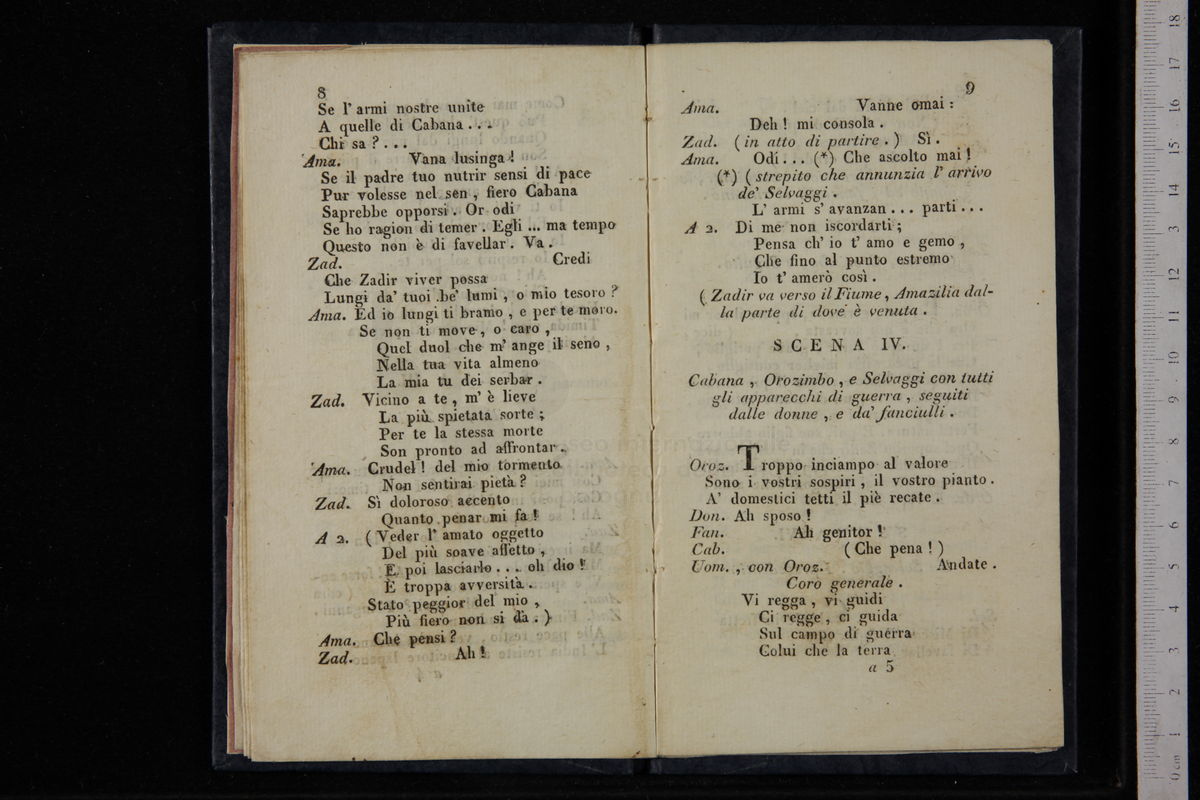 8
Se l' armi nostre unite
A quelle di Cabana . . .
Chi sa ? . . .
Ama. Vana lusinga !
Se il padre tuo nutrir sensi di pace
Pur volesse nel sen , fiero Cabana
Saprebbe opporsi . Or odi
Se ho ragion di temer . Egli ... ma tempo
Questo non è di favellar . Va .
Zad. Credi
Che Zadir viver possa
Lungi da' tuoi be' lumi , o mio tesoro ?
Ama. Ed io lungi ti bramo , e per te moro.
Se non ti move , o caro ,
Quel duol che m' ange il seno ,
Nella tua vita almeno
La mia tu dei serbar .
Zad. Vicino a te , m' è lieve
La più spietata sorte ;
Per te la stessa morte
Son pronto ad affrontar .
Ama. Crudel ! del mio tormento
Non sentirai pietà ?
Zad. Sì doloroso accento
Quanto penar mi fa !
A 2. ( Veder l' amato oggetto
Del più soave affetto ,
E poi lasciarlo . . . oh dio !
È troppa avversità .
Stato peggior del mio ,
Più fiero non si dà . )
Ama. Che pensi ?
Zad. Ah !
9
Ama. Vanne omai :
Deh ! mi consola .
Zad. ( in atto di partire . ) Sì .
Ama. Odi . . . (*) Che ascolto mai !
(*) ( strepito che annunzia l' arrivo
de' Selvaggi .
L' armi s' avanzan . . . parti . . .
A 2. Di me non iscordarti ;
Pensa ch' io t' amo e gemo ,
Che fino al punto estremo
Io t' amerò così .
( Zadir va verso il Fiume , Amazilia dal-
la parte di dove è venuta .
SCENA IV.
Cabana , Orozimbo , e Selvaggi con tutti
gli apparecchi di guerra , seguiti
dalle donne , e da' fanciulli .
Oroz. Troppo inciampo al valore
Sono i vostri sospiri , il vostro pianto .
A' domestici tetti il piè recate .
Don. Ah sposo !
Fan. Ah genitor !
Cab. ( Che pena ! )
Uom. , con Oroz. Andate .
Coro generale .
Vi regga , vi guidi
Ci regge , ci guida
Sul campo di guerra
Colui che la terra
a 5
0 cm 1 2 3 4 5 6 7 8 9 10 11 12 13 14 15 16 17 18